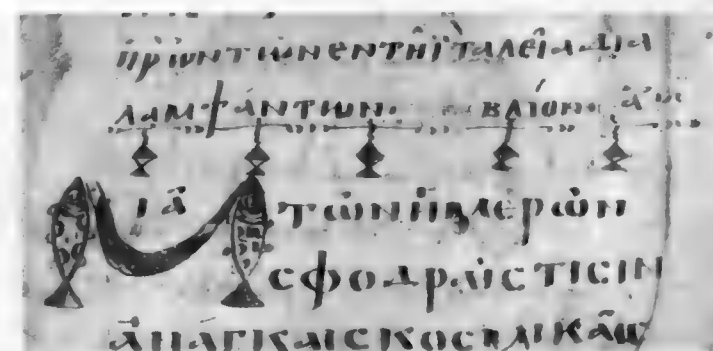 π̅ρ̅ων τῶν ἐν τῆ ϊταλεία δια
λαμψάντων βλίον ᾱ
Μιᾶ τῶν ἡμερῶν
σφοδραῖς τισιν
ἀνάγκαις κοσμικᾶις